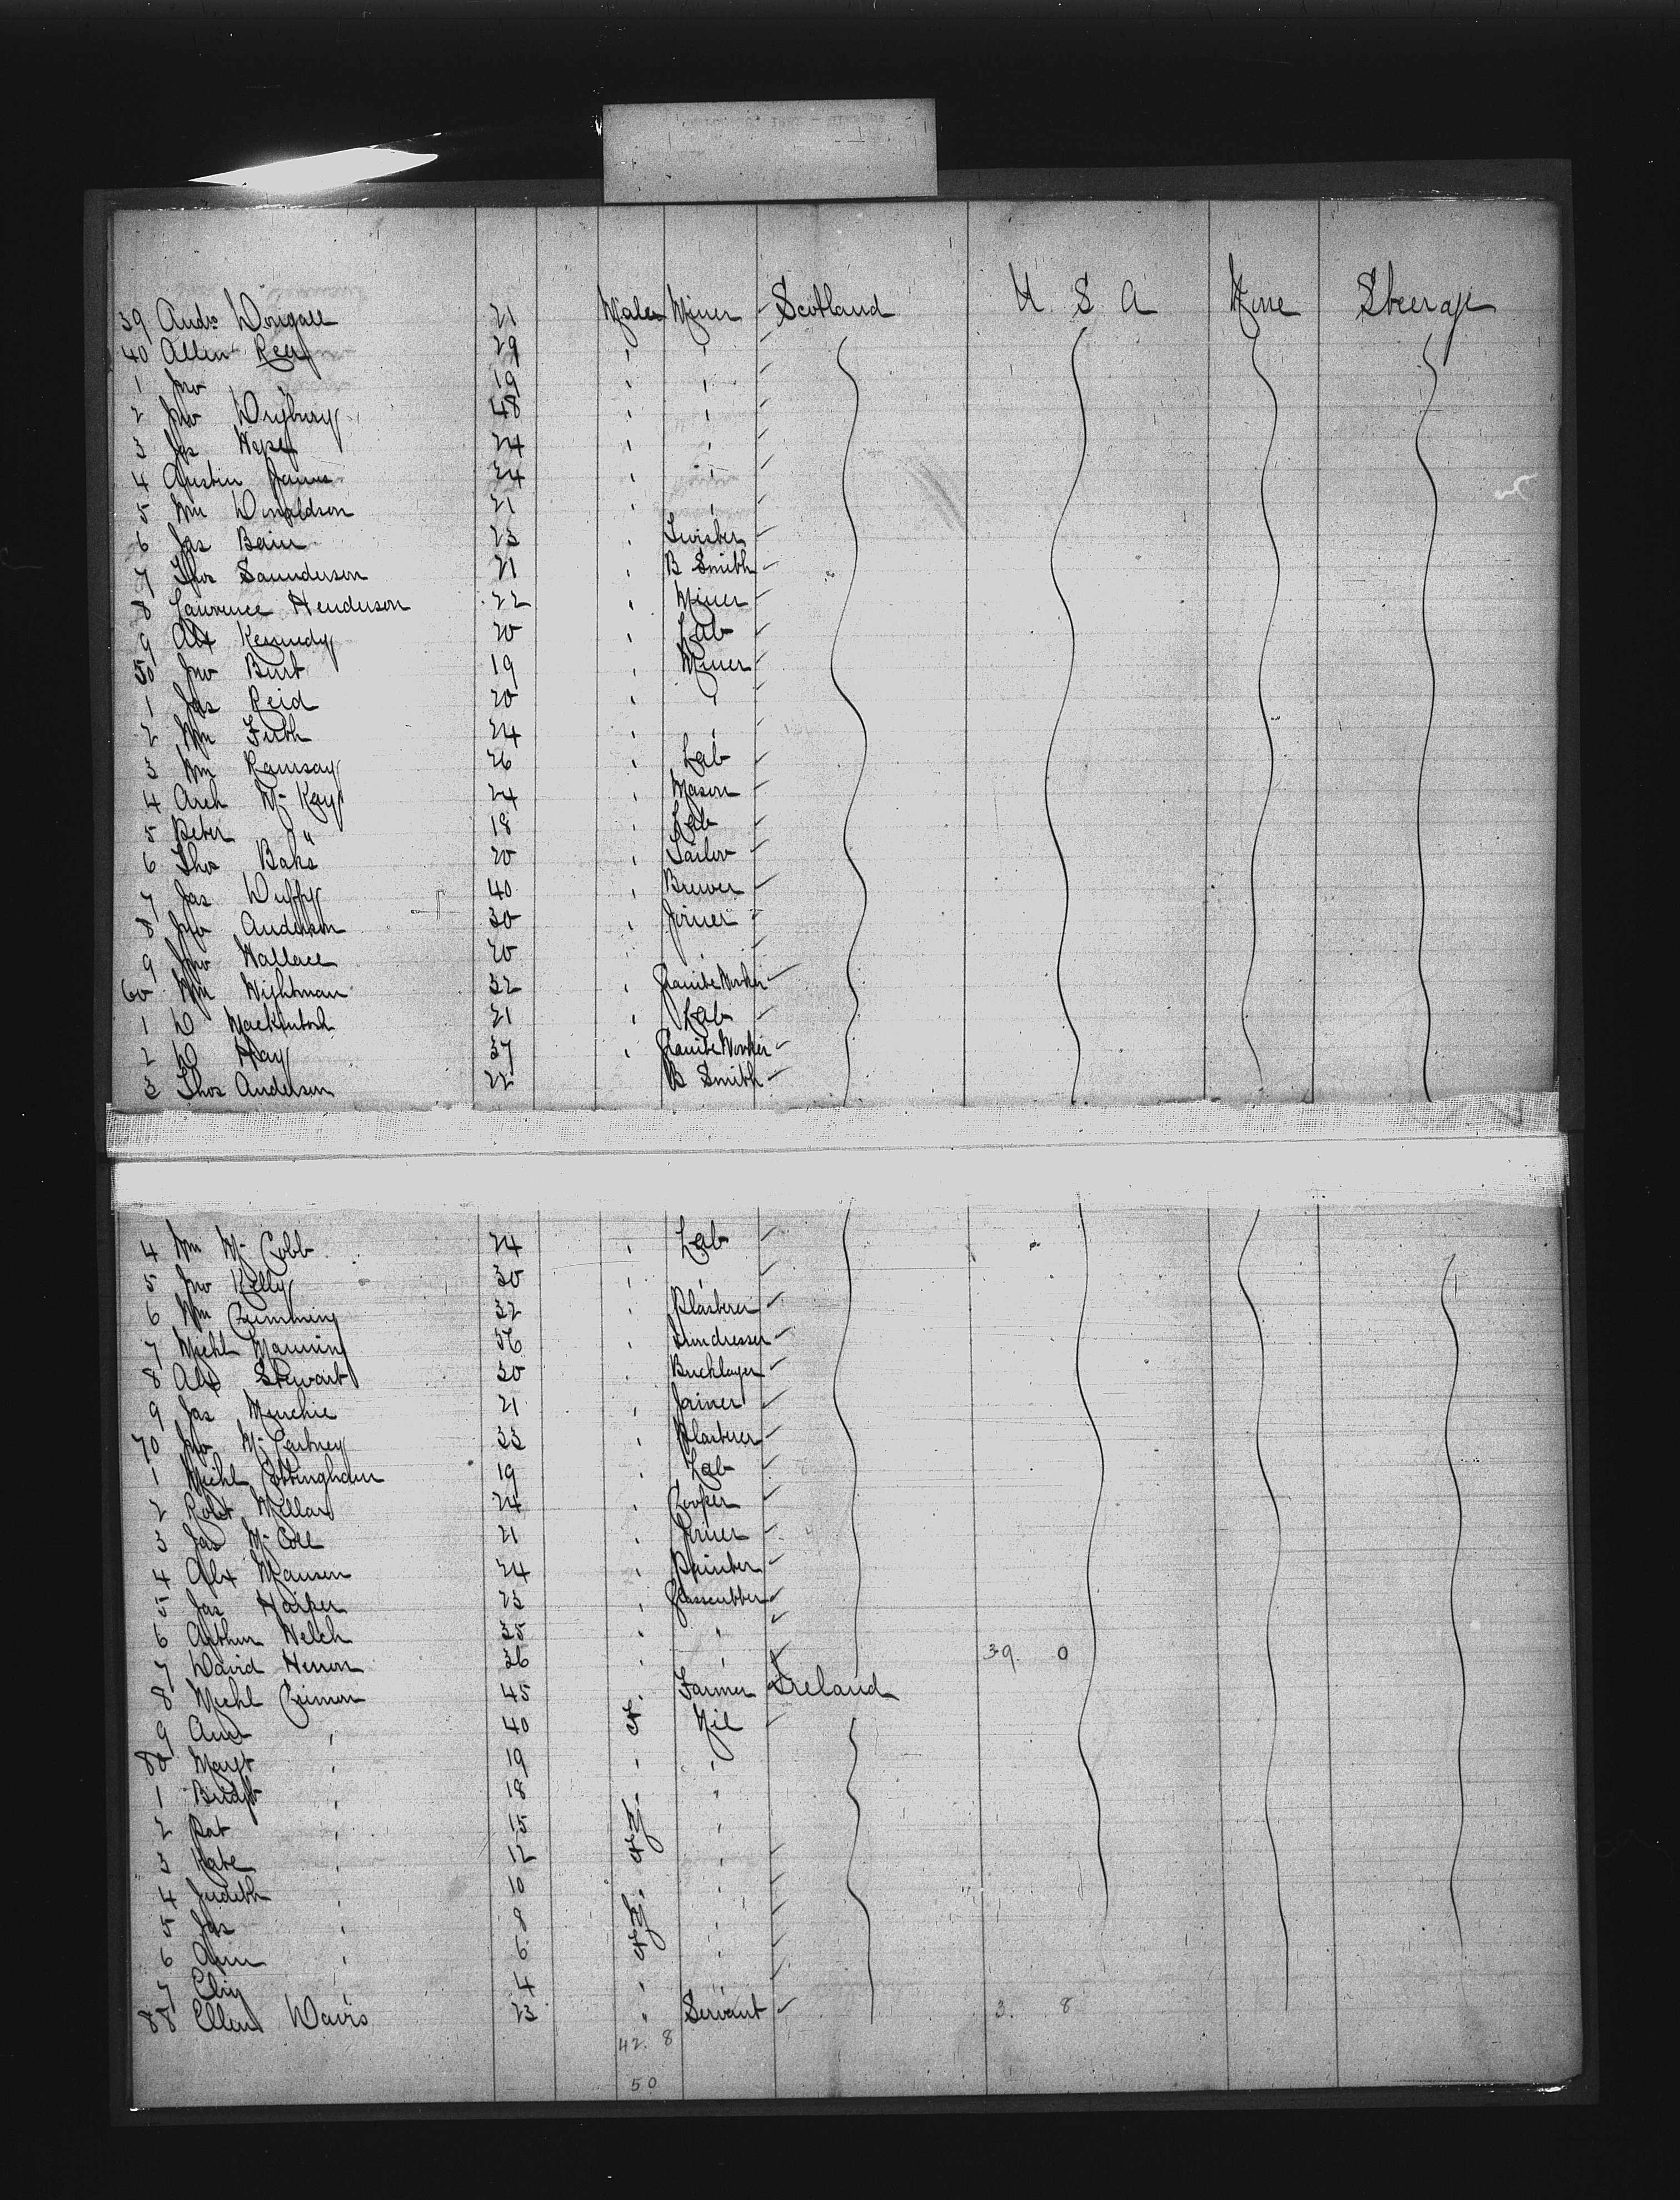 39 Andw Dougall 21 Male Miner Scotland U S A None Steerage
40 Allen Reg 29 " "
1 Jno 19 " "
2 Jno 48 " "
3 Jas 24 " "
4 Austin James 24 " "
5 Wm Donaldson 21 " "
6 Jas Bain 23 " Twister
7 Thos Saunderson 21 " B Smith
8 Lawrence Henderson 22 " Miner
9 Alx Kennedy 20 " Lab
50 Jno Burt 19 " Miner
1 Jas Reid 20 " "
2 Wm Firth 24 " "
3 Wm Ramsay 26 " Lab
4 Arch Mc Kay 24 " Mason
5 Peter " 18 " Lab
6 Thos Baks 20 " Tailor
7 Jas Duffy 40 " Brewer
8 Jno Anderson 30 " Joiner
9 Jno Wallace 20 " "
60 Wm Wightman 32 " Granite Worker
1 D Mackintosh 21 " Lab
2 D Hay 37 " Granite Worker
3 Thos Anderson 22 B Smith
4 Wm Mc Cobb 24 " Lab
5 Jno Kelly 30 " "
6 Wm Cumming 32 " Plasterer
7 Michl Mannin 56 "
8 Alx Stewart 30 " Bricklayer
9 Jas Menchie 21 " Joiner
70 Jno Mc Cartney 33 " Plasterer
1 Michl Cottingham 19 " Lab
2 Robt Millar 24 " Cooper
3 Jas Mc Coll 21 " Joiner
4 Alx Manson 24 " Painter
5 Jas Harker 23 " Glasscutter
6 Arthur Welch 35 " "
7 David Herron 36 " " 39. 0
8 Michl Crimon 45 " Farmer Ireland
9 Ann " 40 F Nil
80 Margt " 19 " "
1 Bridgt " 18 " "
2 Pat " 15 M "
3 Kate " 12 F "
4 Judith " 10 " "
5 Jas " 8 M "
6 Ann " 6 F "
7 Eliz " 4 " "
88 Ellen Davis 23 " Servant 3. 8
42. 8
50